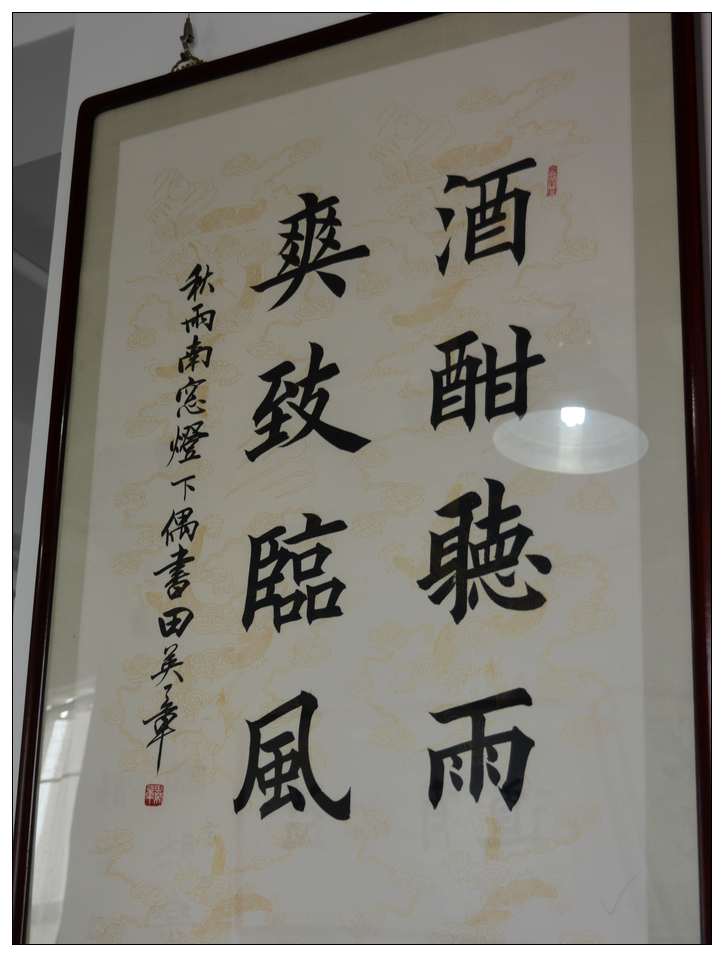 酒酣聽雨
爽致臨風
秋雨南窓燈下偶書田英章